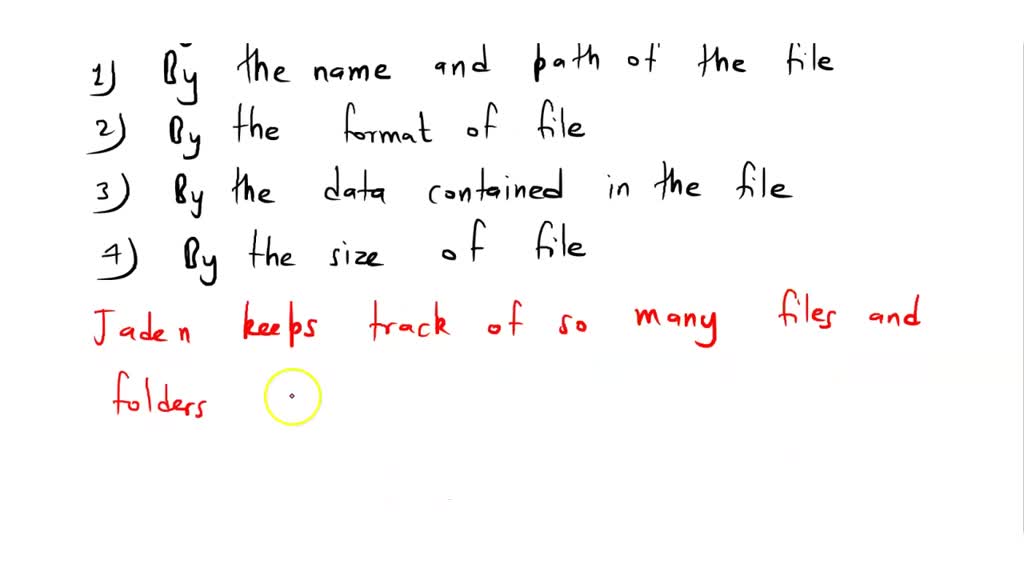 1) By the name and path of the file
2) By the format of file
3) By the data contained in the file
4) By the size of file
Jaden keeps track of so many files and
folders